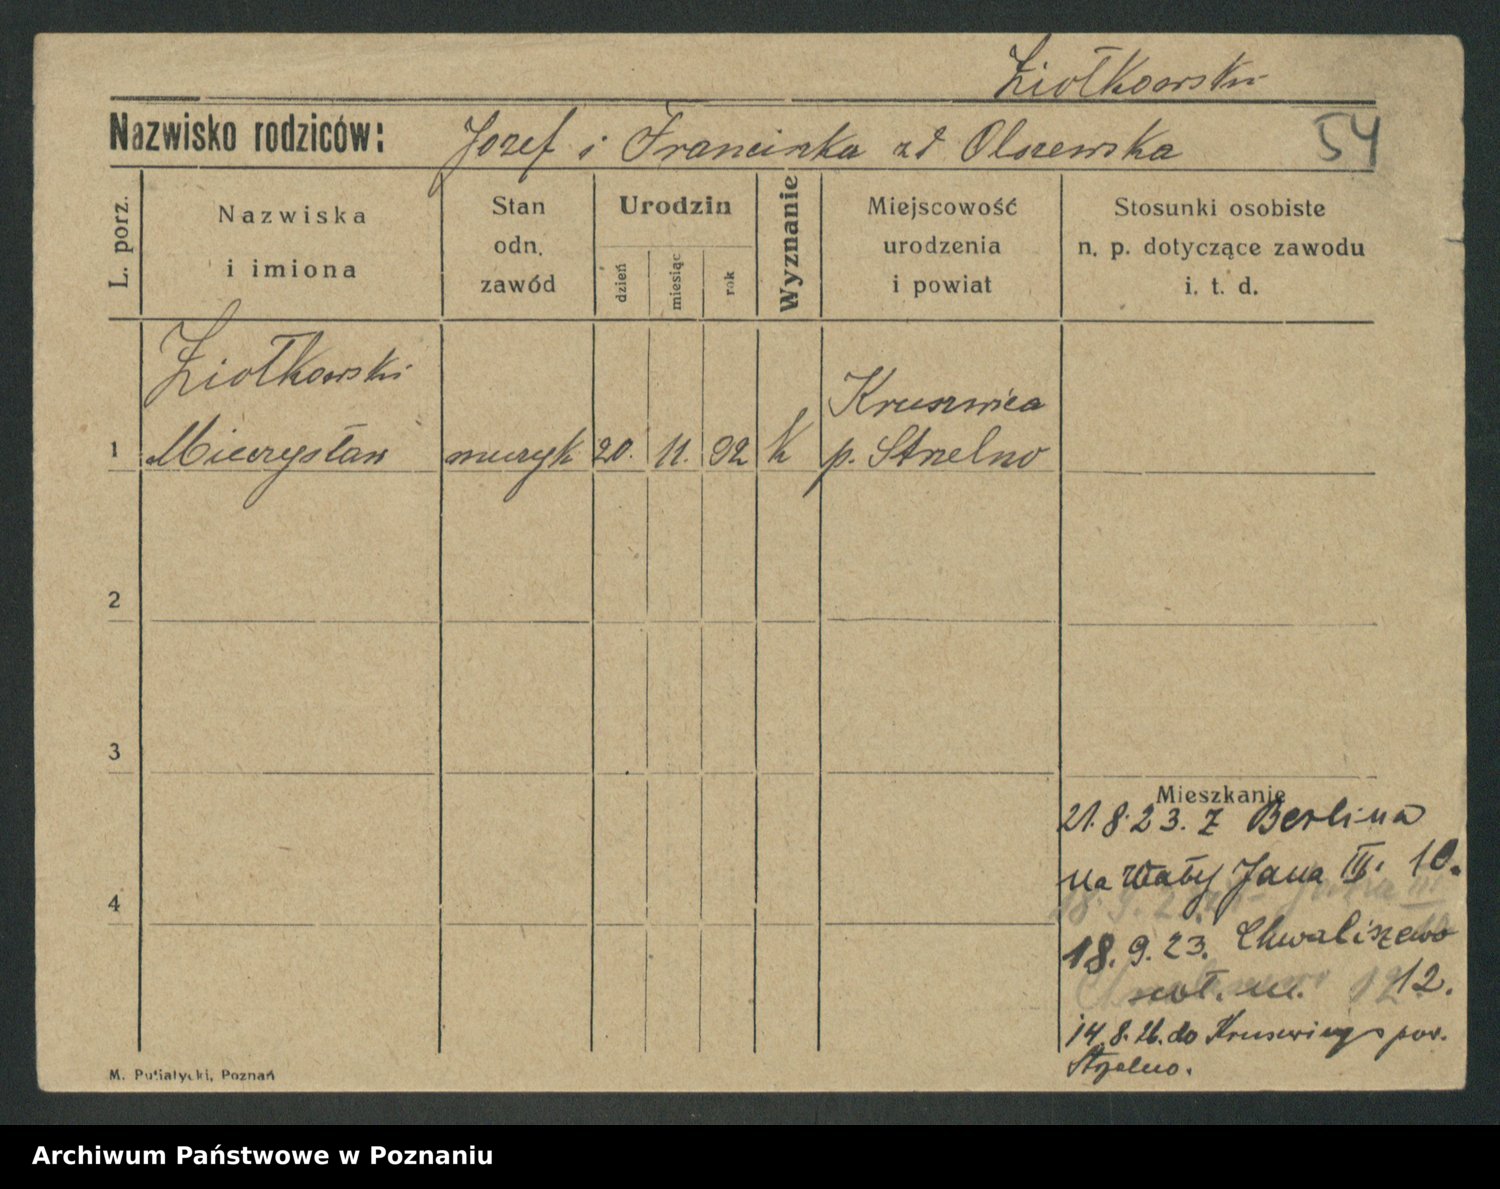 Ziołkowski
Nazwisko rodziców: Jozef i Franciszka zd Olszewska
54
L. porz.
Nazwiska
i imiona
Stan
odn.
zawód
Urodzin
dzień
miesiąc
rok
Wyznanie
Miejscowość
urodzenia
i powiat
Stosunki osobiste
n. p. dotyczące zawodu
i. t. d.
Ziołkowski Kruszwica
1 Mieczysław muzyk 20. 11. 92 k p. Strzelno
2
3
Mieszkanie
21.8.23. Z Berlina
na Wały Jana III. 10.
4
18.9.23. Chwaliszewo
12.
14.8.26. do Kruszwicy pow.
Strzelno.
M. Putiatycki, Poznań
Archiwum Państwowe w Poznaniu